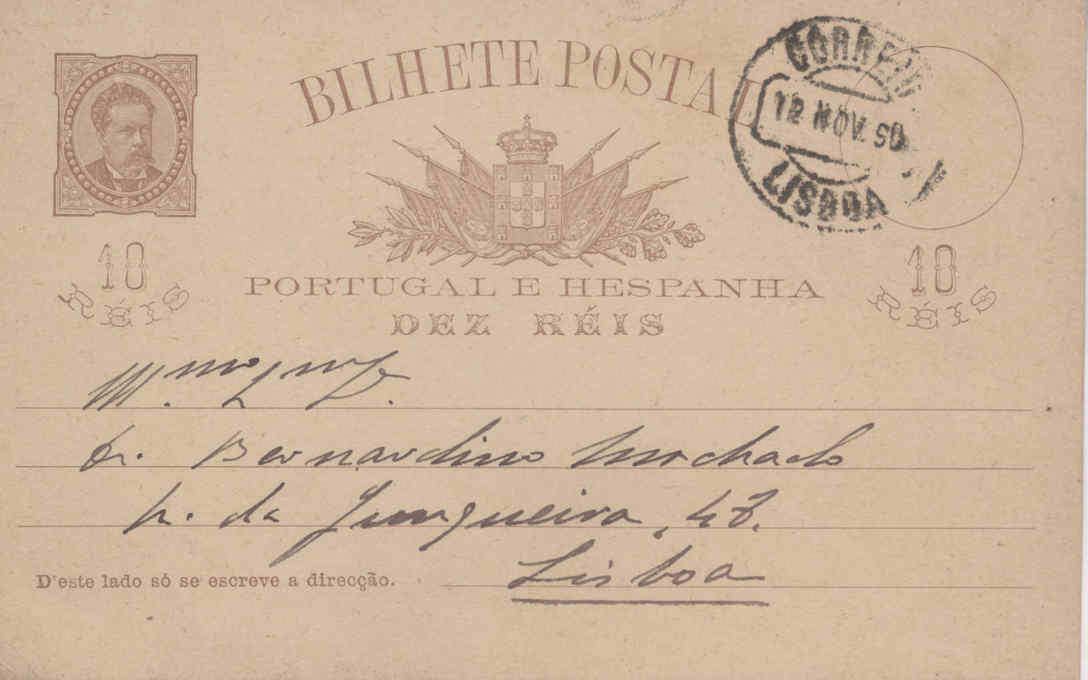 BILHETE POSTAL
CORREIO
12 NOV. 90
LISBOA
10 RÉIS
10 RÉIS
PORTUGAL E HESPANHA
DEZ RÉIS
Dr. Bernardino Machado
R. da Junqueira,
Lisboa
D'este lado só se escreve a direcção.